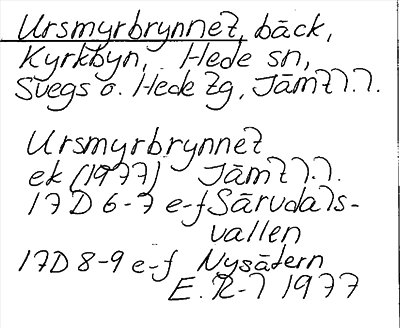 Ursmyrbrynnet, bäck,
Kyrkbyn, Hede sn,
Svegs o. Hede tg, Jämtl.l.
Ursmyrbrynnet
ek (1977) Jämtl.l.
17D 6-7 e-f Särvdals-
vallen
17D 8-9 e-f Nysätern
E. R-l 1977